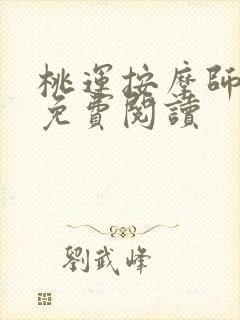 桃運按摩師
免費閱讀
劉武峰